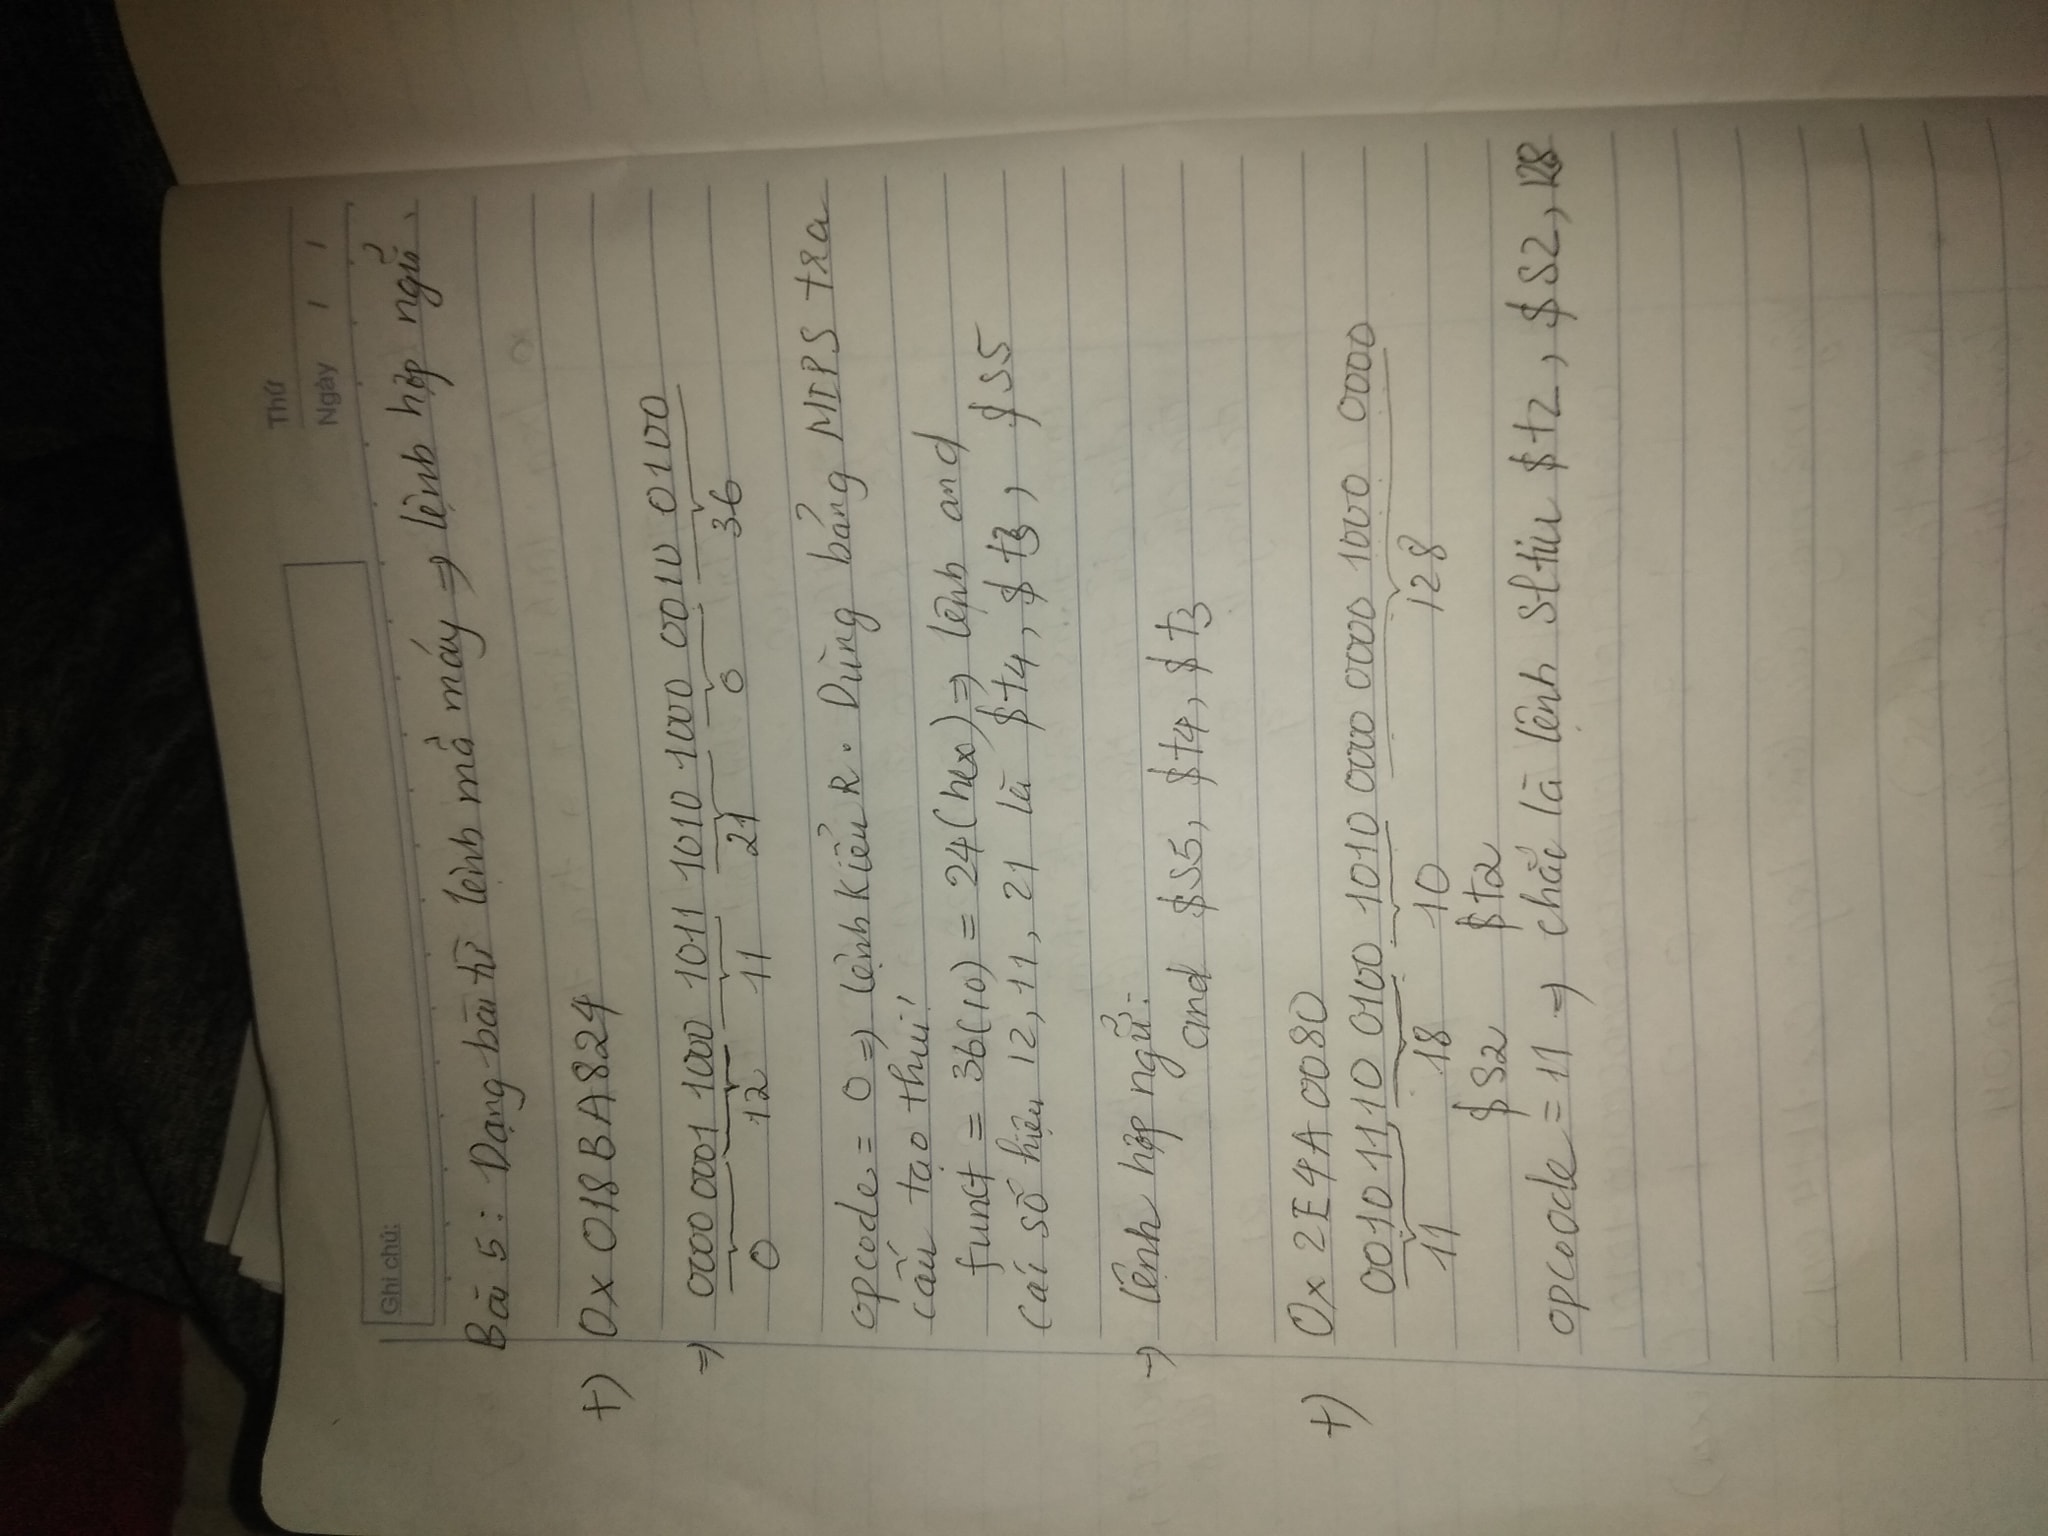 Thứ
Ngày / /
Ghi chú:
Bài 5: Dạng bài từ lệnh mã máy => lệnh hợp ngữ.
+) 0x 018BA824
=> 0000 0001 1000 1011 1010 1000 0010 0100
0 12 11 21 0 36
opcode = 0 => lệnh kiểu R. Dùng bảng MIPS tra
cấu tạo thui!
funct = 36(10) = 24(hex) => lệnh and
Các số hiệu 12, 11, 21 là $t4, $t3, $S5
-> lệnh hợp ngữ:
and $S5, $t4, $t3
+) 0x 2E4A0080
0010 1110 0100 1010 0000 0000 1000 0000
11 18 10 128
$S2 $t2
opcoode = 11 => chắc là lệnh Sltiu $t2, $S2, 128